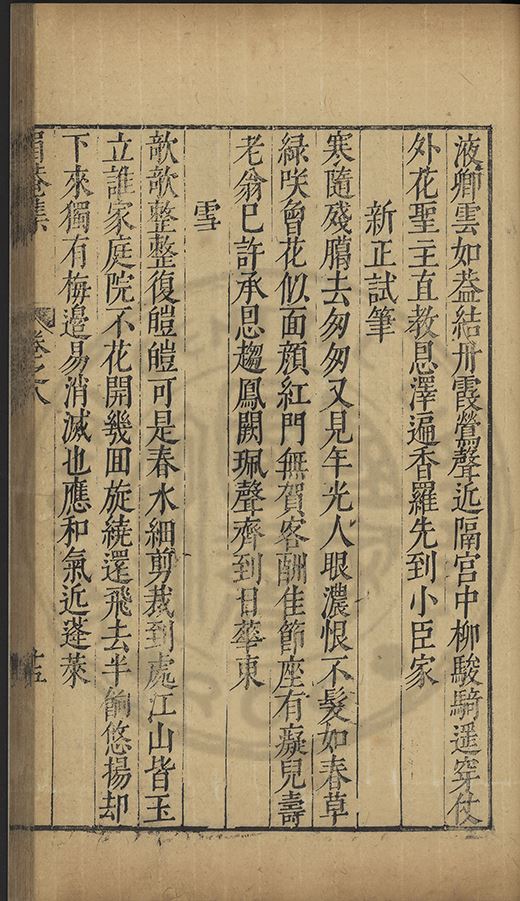 液卿雲如蓋結丹霞鶯聲近隔宮中柳駿騎遥穿仗
外花聖主直教恩澤遍香羅先到小臣家
新正試筆
寒隨殘臈去匆匆又見年光人眼濃恨不髮如春草
緑咲㑹花似面顔紅門無賀客酬佳節座有癡兒壽
老翁已許承恩趨鳳闕珮聲齊到日華東
雪
欹欹整整復皚皚可是春水細剪裁到處江山皆玉
立誰家庭院不花開幾回旋繞還飛去半餉悠揚却
下來獨有梅邉易消滅也應和氣近蓬萊
卷之八
十五